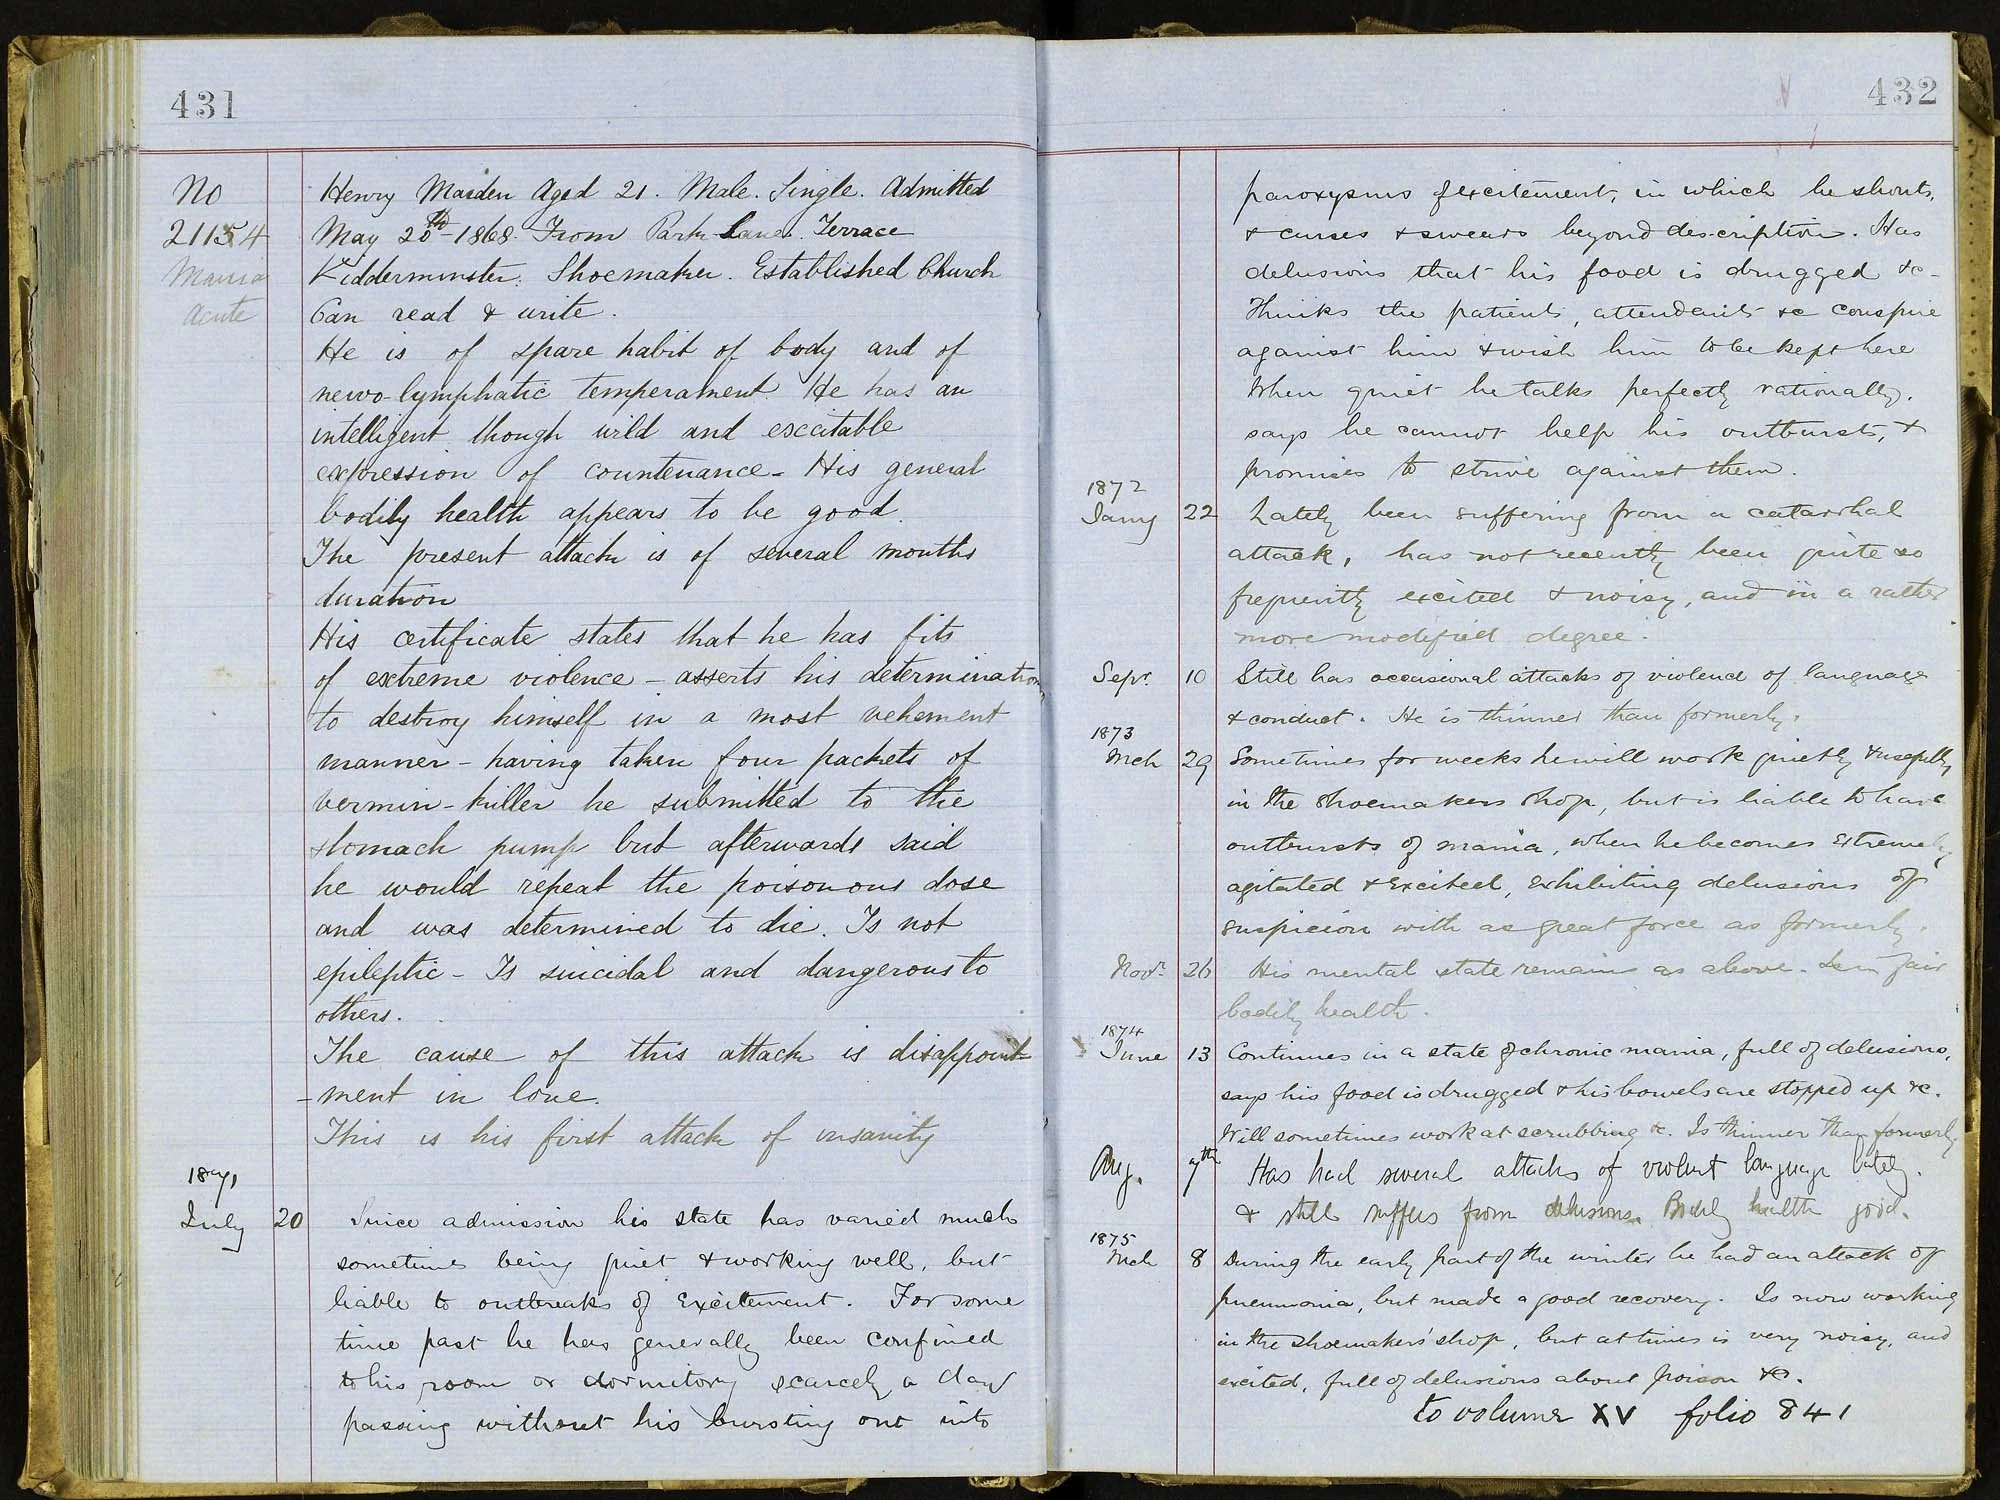 431
No
21154
Mania
Acute
Henry Marden Aged 21. Male. Single. Admitted
May 20th 1868. From Park Lane Terrace
Kidderminster. Shoemaker. Established Church
Can read & write.
He is of spare habit of body and of
nervo-lymphatic temperament He has an
intelligent though wild and excitable
expression of countenance - His general
bodily health appears to be good.
The present attack is of several months
duration
His certificate states that he has fits
of extreme violence - asserts his determination
to destroy himself in a most vehement
manner - having taken four packets of
vermin-killer he submitted to the
stomach pump but afterwards said
he would repeat the poisonous dose
and was determined to die. Is not
epileptic - Is suicidal and dangerous to
others.
The cause of this attack is disappoint-
-ment in love.
This is his first attack of insanity
1871
July 20 Since admission his state has varied much
sometimes being quiet & working well, but
liable to outbreaks of excitement. For some
time past he has generally been confined
to his room or dormitory scarcely a day
passing without his bursting out into
432
paroxysms of excitement, in which he shouts,
& curses & swears beyond description. Has
delusions that his food is drugged &c -
Thinks the patients, attendants &c conspire
against him & wish him to be kept here
When quiet he talks perfectly rationally,
says he cannot help his outbursts, &
promises to strive against them.
1872
Jany 22 Lately been suffering from a catarrhal
attack, has not recently been quite so
frequently excited & noisy, and in a rather
more modified degree.
Sepr. 10 Still has occasional attacks of violence of language
& conduct. He is thinner than formerly.
1873
Mch 29 Sometimes for weeks he will work quietly & usefully
in the shoemakers shop, but is liable to have
outbursts of mania, when he becomes extremely
agitated & excited, exhibiting delusions of
suspicion with as great force as formerly.
Novr 26 His mental state remains as above. Is in fair
bodily health.
1874
June 13 Continues in a state of chronic mania, full of delusions,
says his food is drugged & his bowels are stopped up &c.
Will sometimes work at scrubbing &c. Is thinner than formerly
Aug. 7th Has had several attacks of violent language lately.
& still suffers from delusions. Bodily health good.
1875
Mch 8 During the early part of the winter he had an attack of
pneumonia, but made a good recovery. Is now working
in the shoemakers' shop, but at times is very noisy, and
excited, full of delusions about poison &c.
to volume XV folio 841